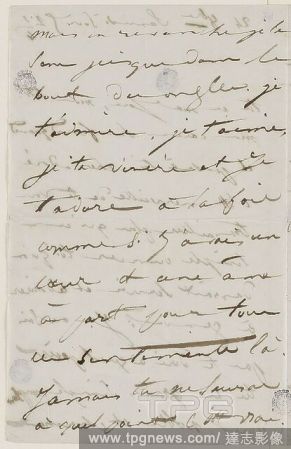 mais en revanche je le
suis jusque dans le
bout des ongles. je
t'admire, je t'aime,
je te vénère et je
t'adore à la fois
comme si j'avais un
cœur et une âme
à part pour tous
ces sentiments là.
Jamais tu ne sauras
à quel point c'est vrai
TPG
www.tpgnews.com / 達志影像